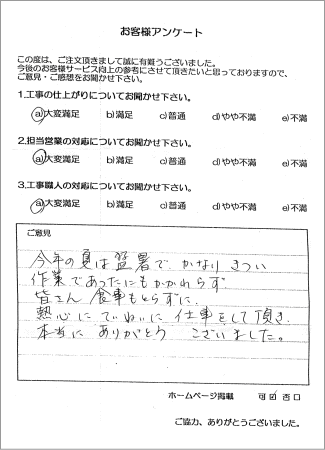 お客様アンケート
この度は、ご注文頂きまして誠に有難うございました。
今後のお客様サービス向上の参考にさせて頂きたいと思っておりますので、
ご意見・ご感想をお聞かせ下さい。
1.工事の仕上がりについてお聞かせ下さい。
a)大変満足 b)満足 c)普通 d)やや不満 e)不満
2.担当営業の対応についてお聞かせ下さい。
a)大変満足 b)満足 c)普通 d)やや不満 e)不満
3.工事職人の対応についてお聞かせ下さい。
a)大変満足 b)満足 c)普通 d)やや不満 e)不満
ご意見
今年の夏は猛暑で、かなりきつい
作業であったにもかかわらず
皆さん 食事もとらずに、
熱心に ていねいに 仕事をして頂き、
本当に ありがとう ございました。
ホームページ掲載 可 否
ご協力、ありがとうございました。